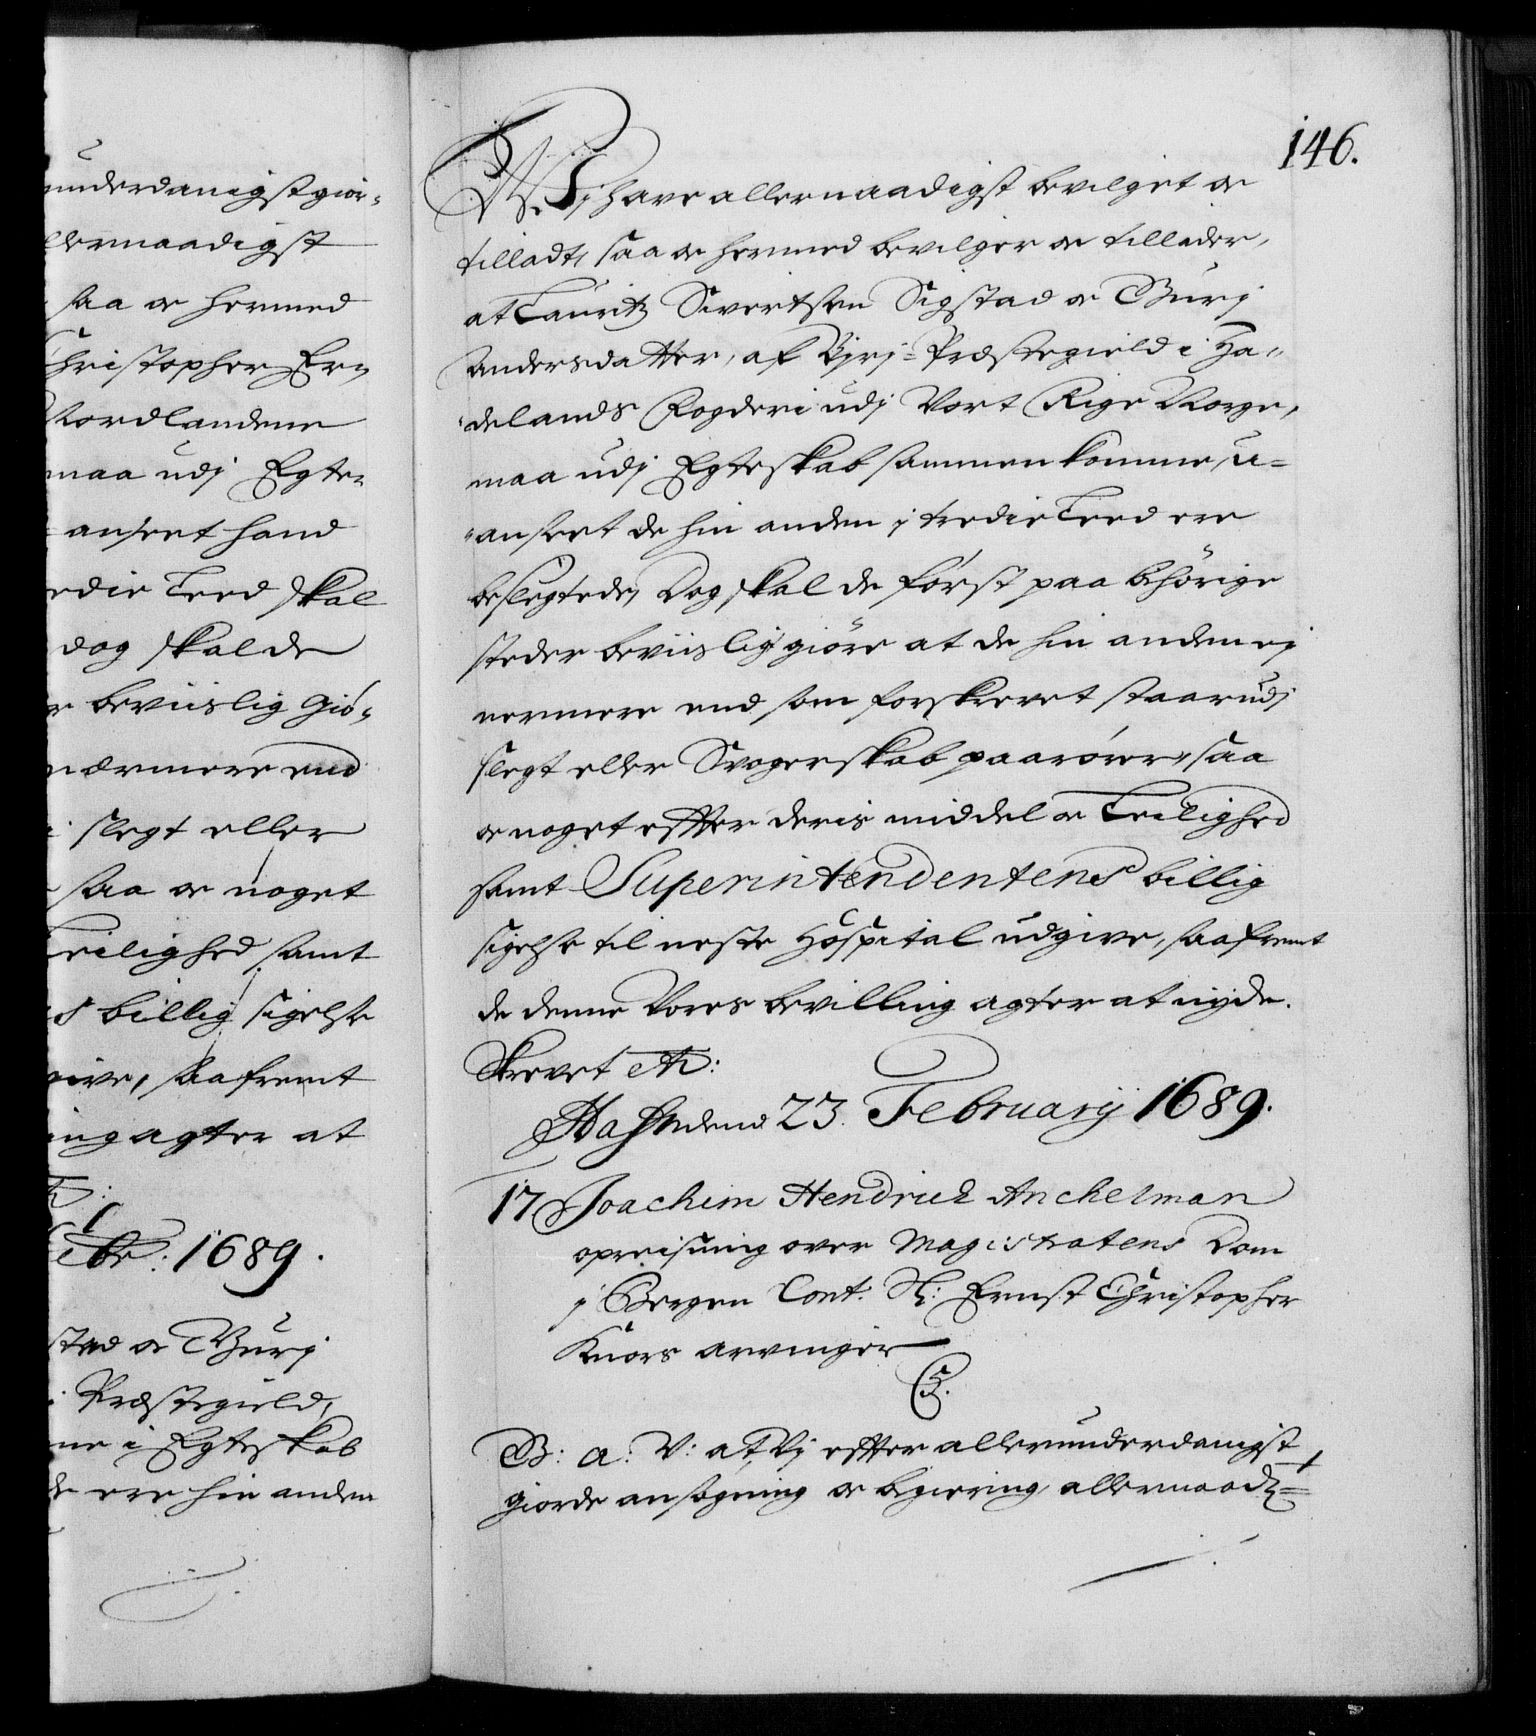 underdanigst giör-
llernaadigst
saa oc hermed
Christopher Er-
Nordlandene
maa udj Egte-
anseet hand
redie Leed skal
dog skal de
beviislig giö-
nærmere end
slegt eller
saa oc noget
Leilighed samt
s billig sigelse
give, saafremt
ing agter at
Febr: 1689.
stad oc Burj
Præstegield,
me i Egteskab
de ere hin anden
146.
Wj have allernaadigst bevilget oc
tilladt, saa oc hermed bevilger oc tillader,
at Lauritz Sivertsen Sigstad oc Burj
Andersdatter, af Birj-Præstegield i Ha-
delands Fogderi udj Vort Rige Norge,
maa udj Egteskab sammen komme, u-
anseet de hin anden j tredie Leed ere
beslegtede, Dog skal de först paa behörige
steder beviislig giöre at de hin anden ej
nermere end som forskrevet staar udj
slegt eller Svogerskab paarörer, saa
oc noget effter deris middel oc Leilighed
samt Superintendentens billig
sigelse til neste Hospital udgive, saafremt
de denne Vores bevilling agter at nyde.
Skrevet etc:
Hafn dend 23. February 1689.
17 Joachim Hendrick Anckelman
opreisning over Magistratens Dom
j Bergen Cont: Sl: Ernst Christopher
Knors arvinger
C5.
G: a: V: at Vj effter allerunderdanigst
giorde ansøgning oc begiering, allernaad-